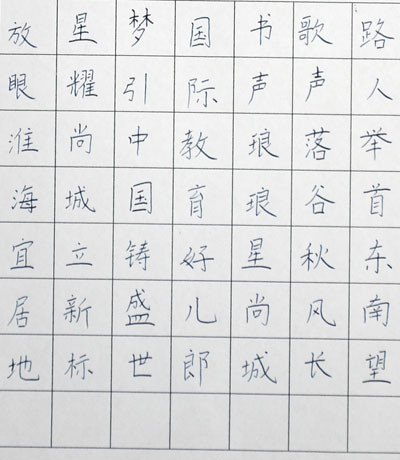 路人举首东南望
歌声落谷秋风长
书声琅琅星尚城
国际教育好儿郎
梦引中国铸盛世
星耀尚城立新标
放眼淮海宜居地